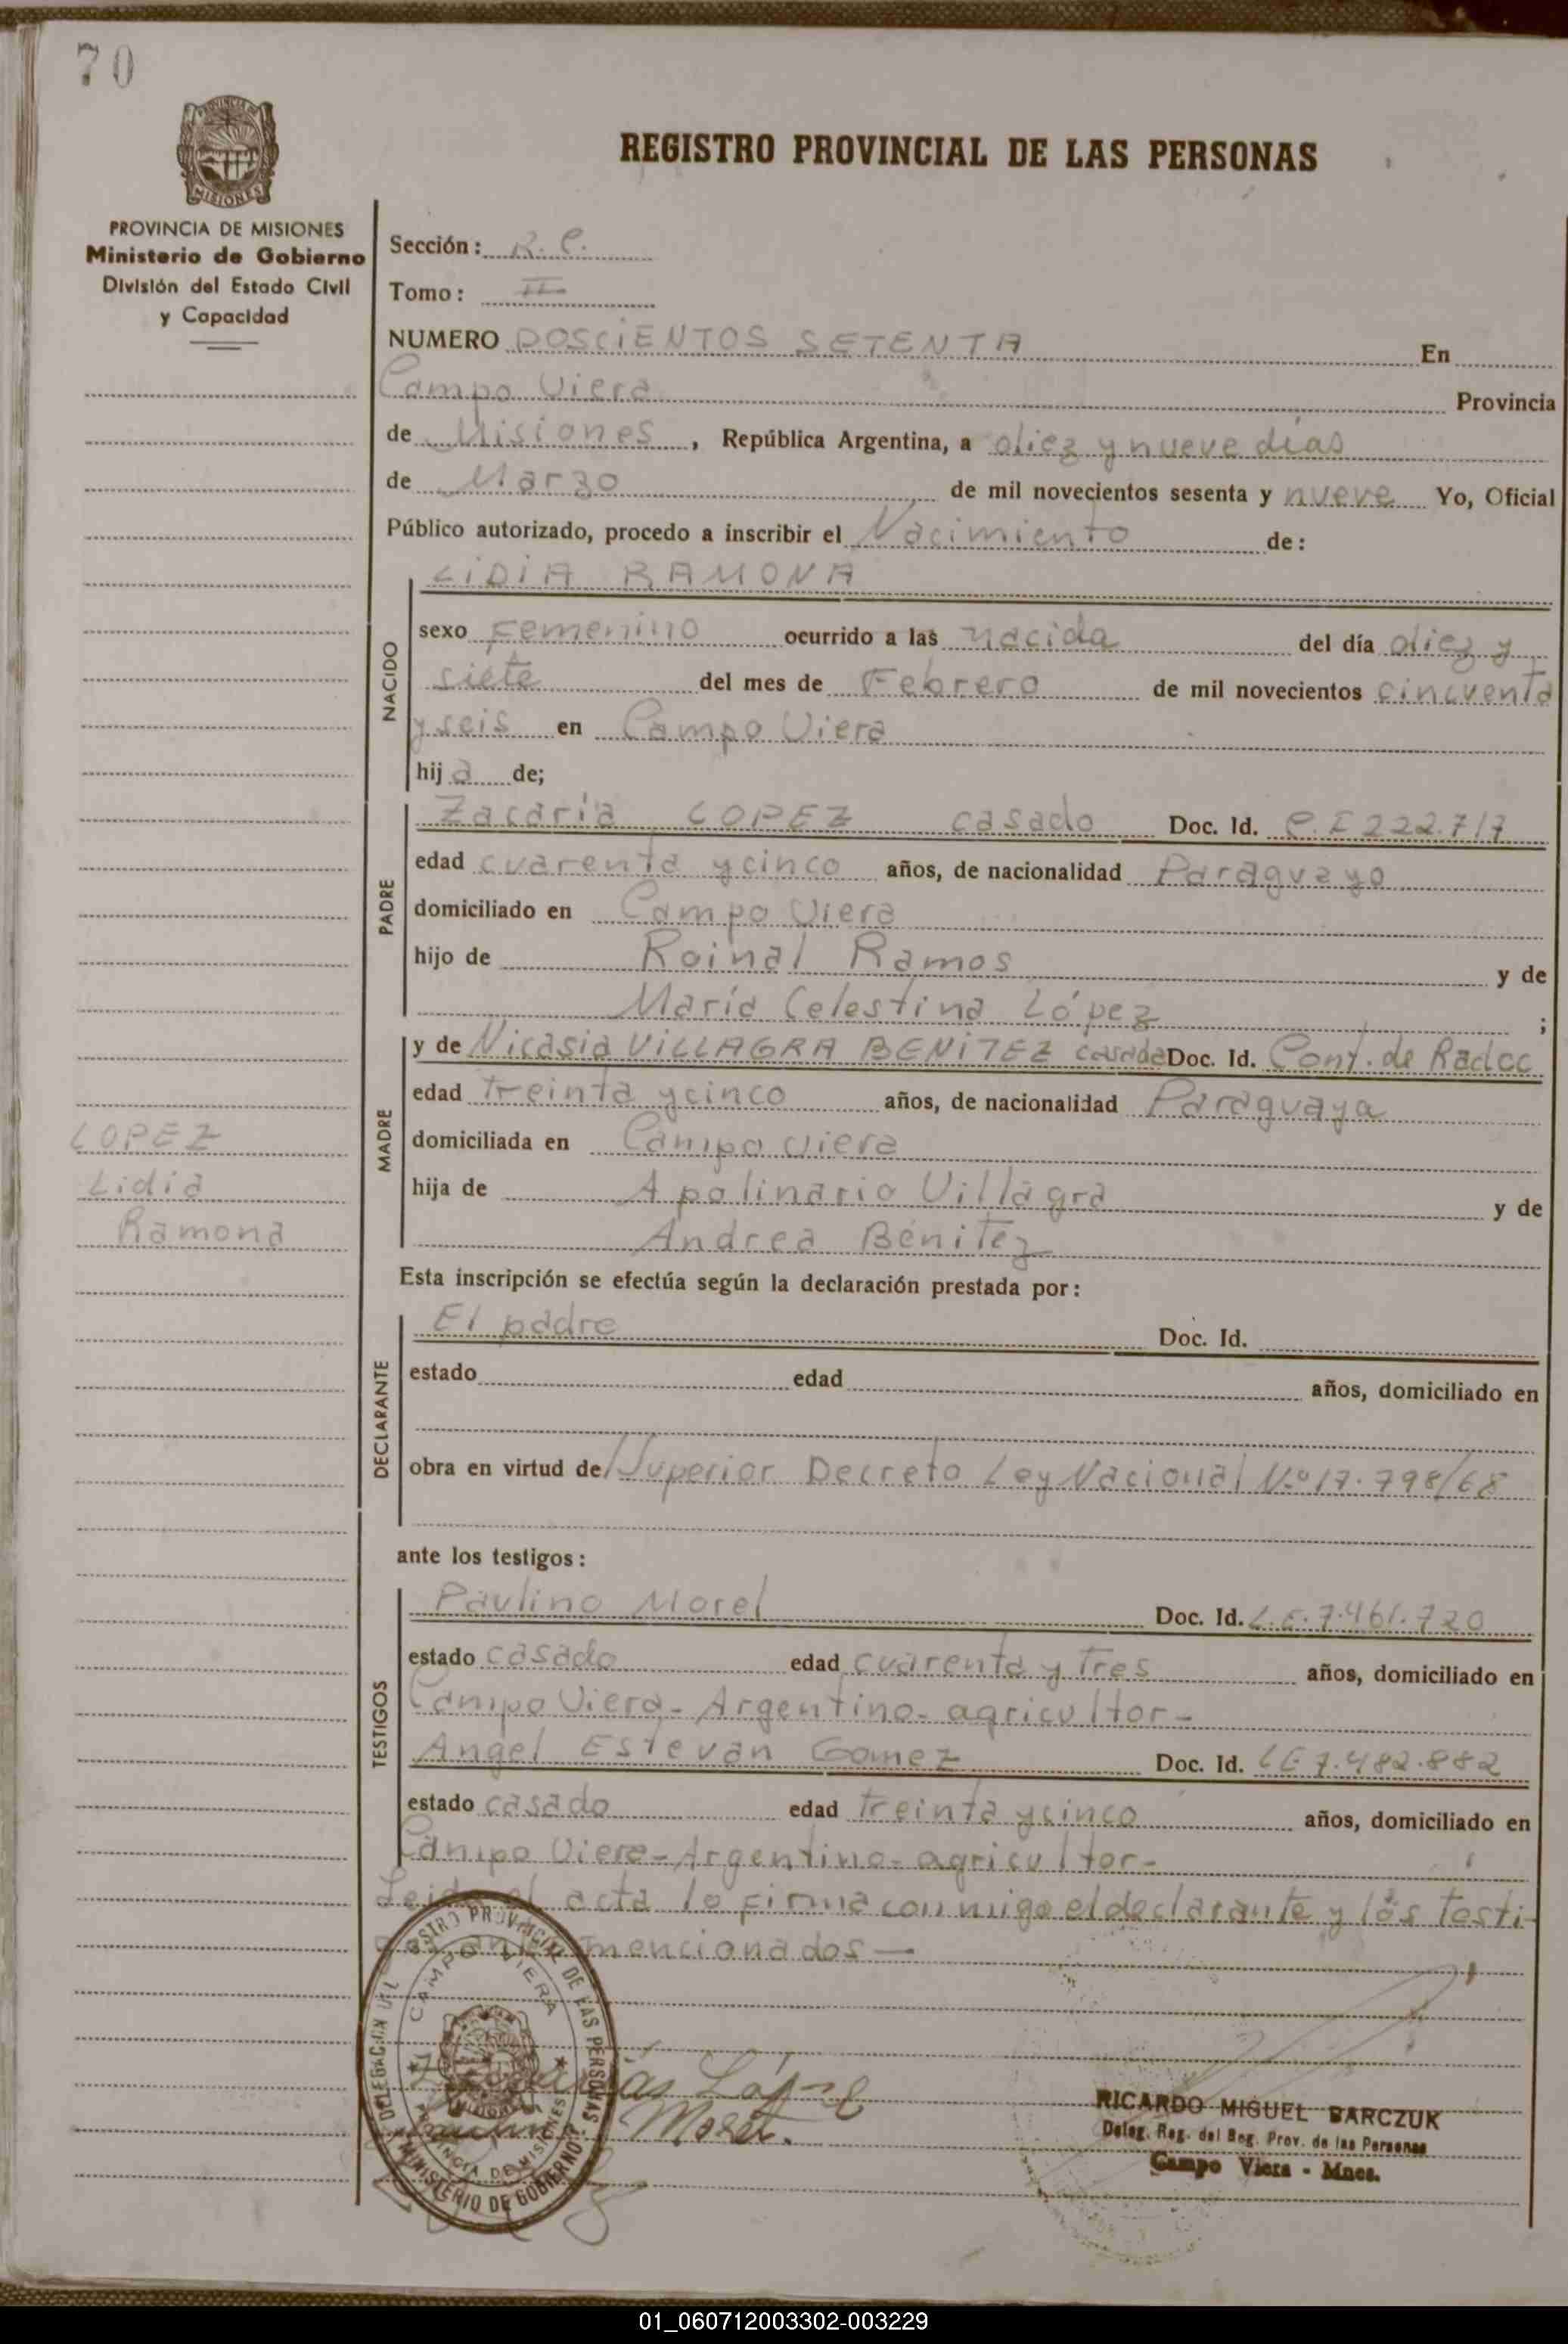 70
PROVINCIA DE MISIONES
Ministerio de Gobierno
División del Estado Civil
y Capacidad
REGISTRO PROVINCIAL DE LAS PERSONAS
Sección: R. C.
Tomo: II
NUMERO DOSCIENTOS SETENTA En
Campo Viera Provincia
de Misiones, República Argentina, a diez y nueve días
de Marzo de mil novecientos sesenta y nueve Yo, Oficial
Público autorizado, procedo a inscribir el Nacimiento de:
NACIDO
LIDIA RAMONA
sexo Femenino ocurrido a las nacida del día diez y
siete del mes de Febrero de mil novecientos cincuenta
y seis en Campo Viera
hija de;
PADRE
Zacaría LOPEZ casado Doc. Id. C.I 222.717
edad cuarenta y cinco años, de nacionalidad Paraguayo
domiciliado en Campo Viera
hijo de Roinal Ramos y de
María Celestina López ;
MADRE
y de Nicasia VILLAGRA BENITEZ casada Doc. Id. Cont. de Radcc
edad treinta y cinco años, de nacionalidad Paraguaya
domiciliada en Campo Viera
hija de Apolinario Villagra y de
Andrea Bénitez
LOPEZ
Lidia
Ramona
Esta inscripción se efectúa según la declaración prestada por:
DECLARANTE
El padre Doc. Id.
estado edad años, domiciliado en
obra en virtud de Superior Decreto Ley Nacional Nº 17.798/68
ante los testigos:
TESTIGOS
Paulino Morel Doc. Id. L.E. 7.461.720
estado casado edad cuarenta y tres años, domiciliado en
Campo Viera - Argentino - agricultor -
Angel Estevan Gomez Doc. Id. LE 7.482.882
estado casado edad treinta y cinco años, domiciliado en
Campo Viera - Argentino - agricultor -
Leida el acta lo firma conmigo el declarante y los testi-
mencionados —
PROVINCIAL DE LAS PERSONAS
CAMPO VIERA
MINISTERIO DE GOBIERNO
López
Morel.
RICARDO MIGUEL BARCZUK
Deleg. Reg. del Reg. Prov. de las Personas
Campo Viera - Mnes.
01_060712003302-003229